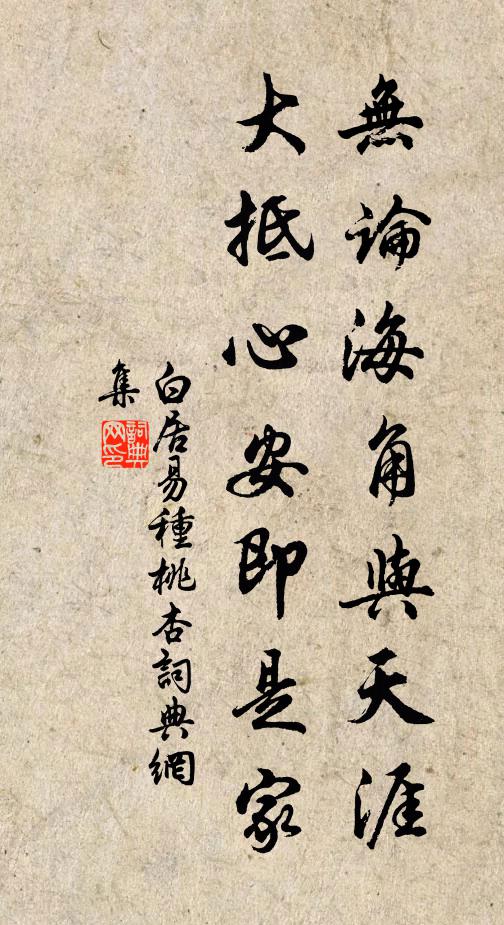 無論海角與天涯
大抵心安即是家
白居易種桃杏詞典網
集
詞典
网印